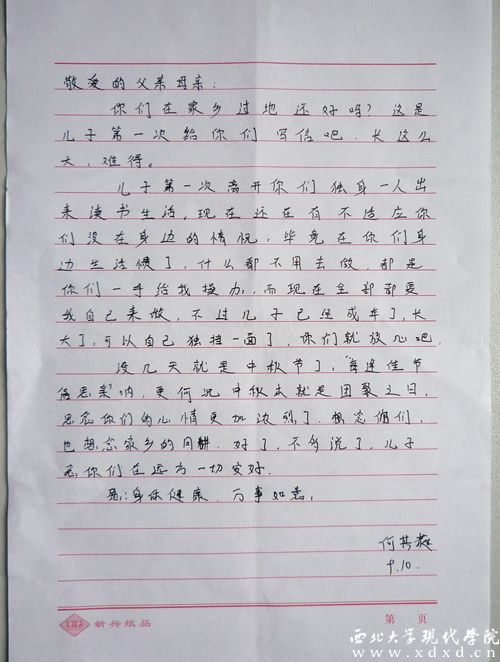 敬爱的父亲母亲：
你们在家乡过地还好吗？这是
儿子第一次给你们写信吧，长这么
大，难得。
儿子第一次离开你们独身一人出
来读书生活，现在还在有不适应你
们没在身边的情况，毕竟在你们身
边生活惯了，什么都不用去做，都是
你们一手给我操办，而现在全部都要
我自己来做，不过儿子已经成年了，长
大了，可以自己独挡一面了，你们就放心吧。
没几天就是中秋节了，“每逢佳节
倍思亲”呐，更何况中秋本就是团聚之日，
思念你们的心情更加浓烈了。想念你们，
也想念家乡的月饼。好了，不多说了，儿子
愿你们在远方一切安好。
愿：身体健康，万事如意。
何其
9.10.
新兴纸品
第 页
西北大学现代学院
www.xdxd.cn